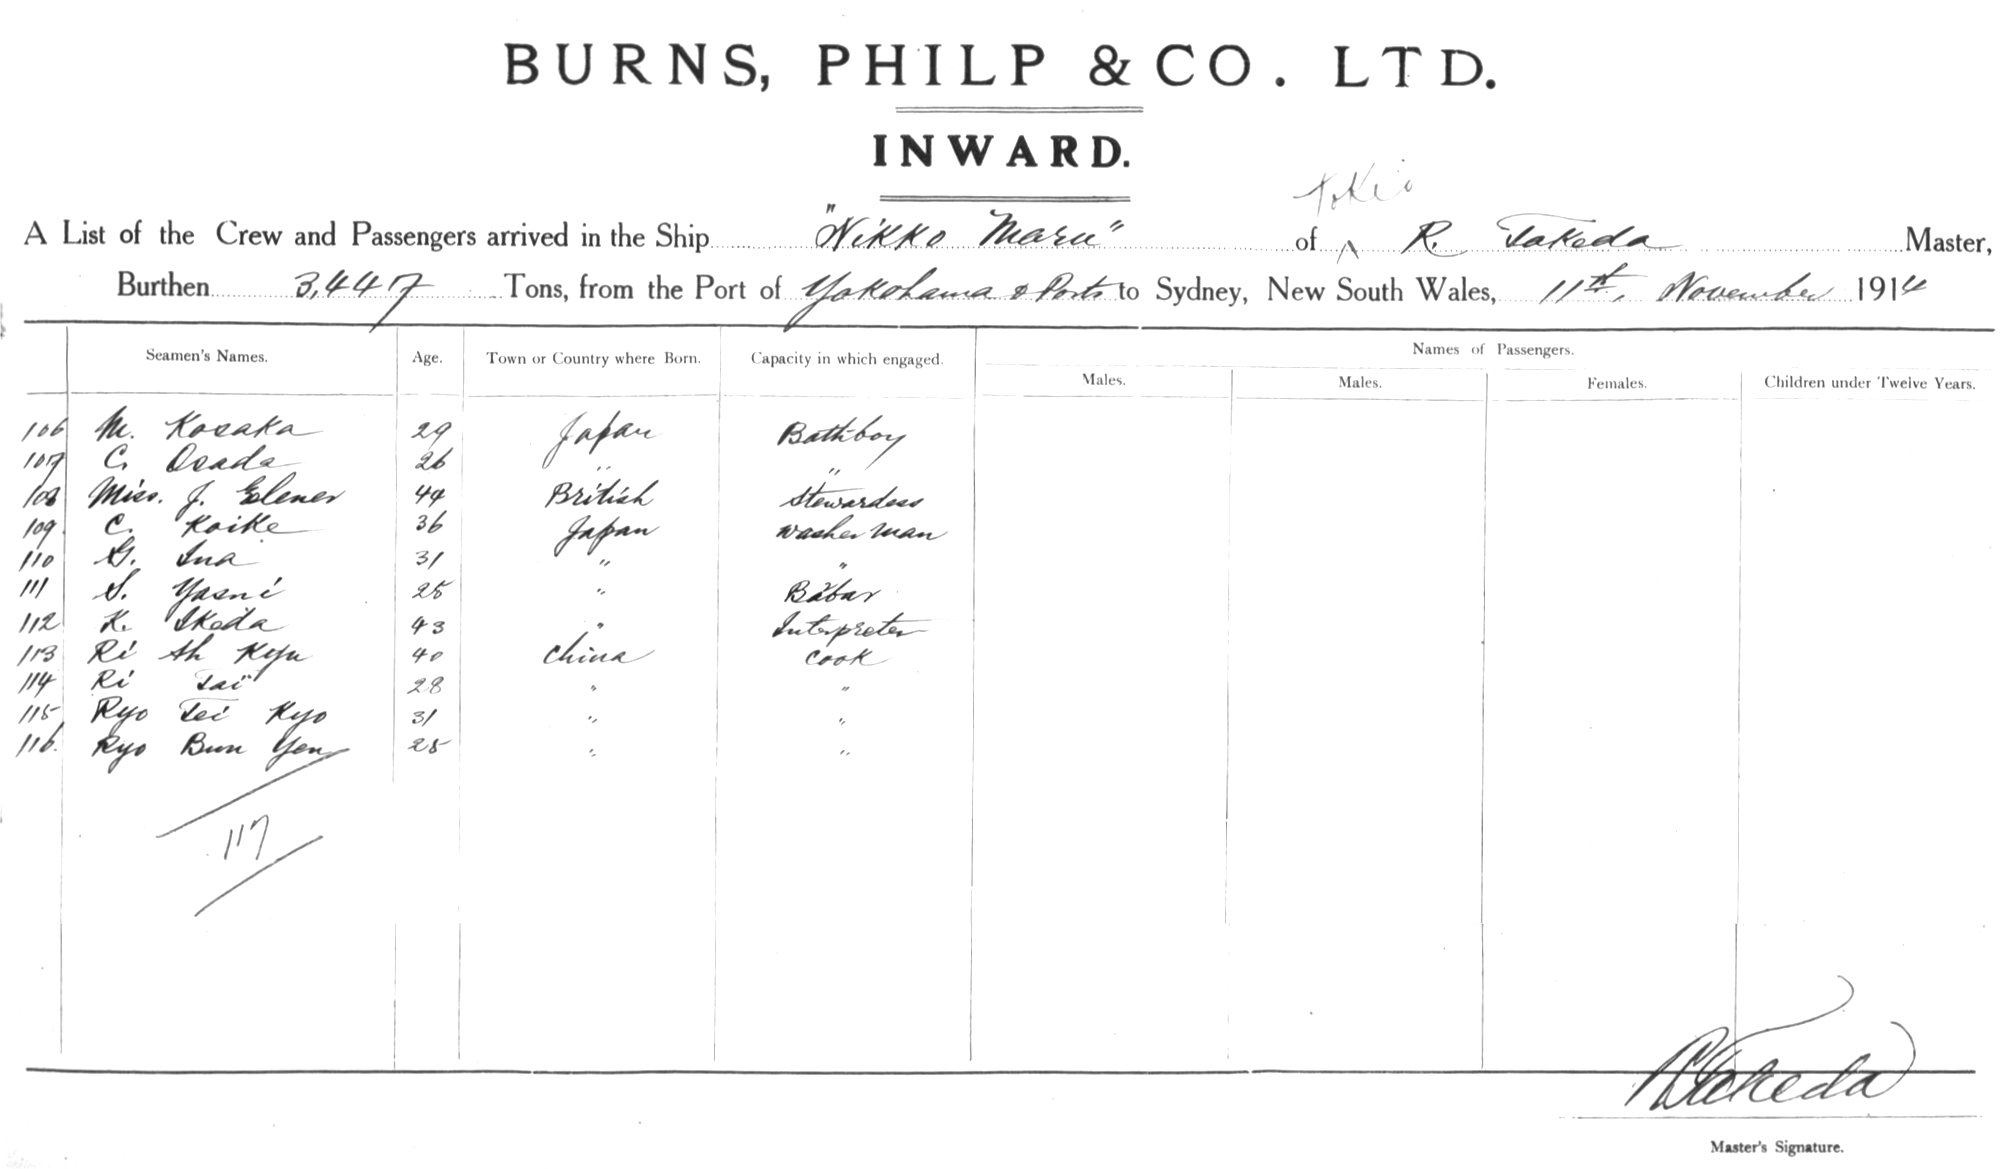 BURNS, PHILP & CO. LTD.
INWARD.
Tokio
A List of the Crew and Passengers arrived in the Ship "Nikko Maru" of ^ R. Takeda Master,
Burthen 3,447 Tons, from the Port of Yokohama & Ports to Sydney, New South Wales, 11th, November 1914
Seamen's Names. Age. Town or Country where Born. Capacity in which engaged. Names of Passengers.
Males. Males. Females. Children under Twelve Years.
106 M. Kosaka 29 Japan Bathboy
107 C. Osada 26 " "
108 Miss. J. Elener 44 British Stewardess
109 C. Koike 36 Japan washerman
110 G. Ina 31 " "
111 S. Yasui 25 " Babar
112 K. Ikeda 43 " Interpreter
113 Ri Sh Kyu 40 China Cook
114 Ri Tai 28 " "
115 Ryo Tei Kyo 31 " "
116. Ryo Bun Yen 25 " "
117
R Takeda
Master's Signature.